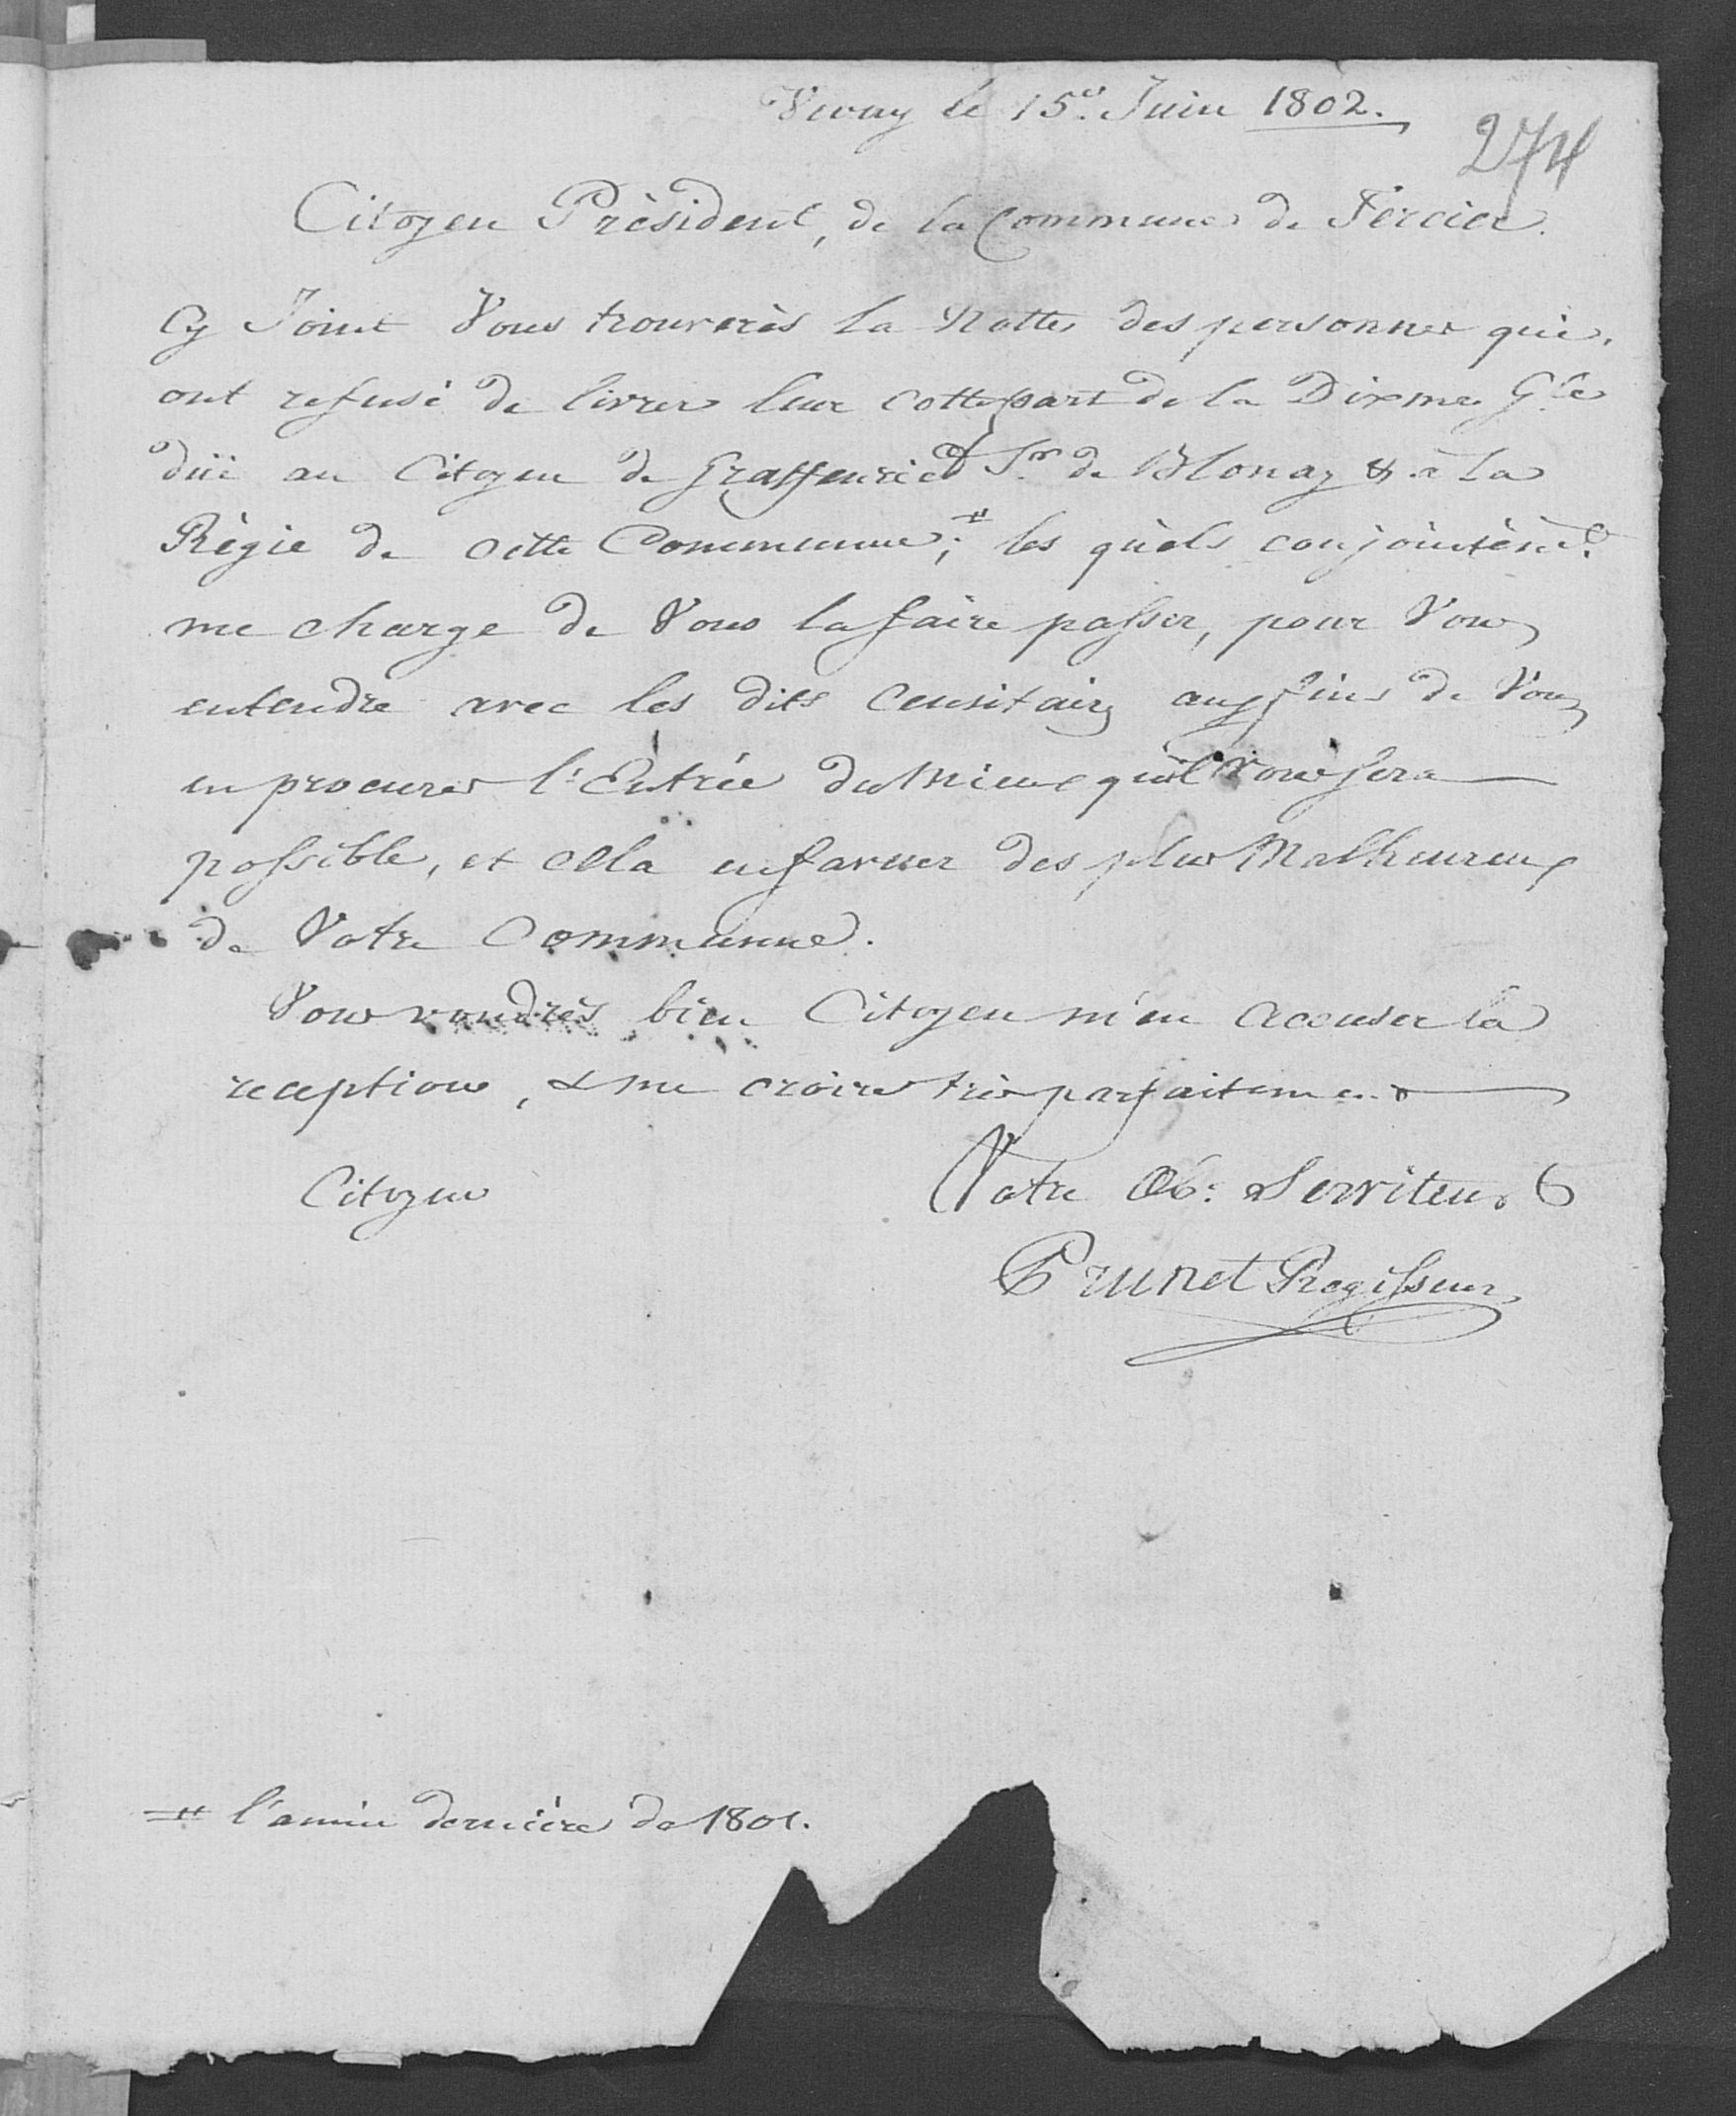 Vevay le 15e. Juin 1802.
274
Citoyen Président, de la Commune de Tercier.
Cy Joint Vous trouverès la Notte des personnes qui,
ont refusé de livrer leur cottepart de la Dixme Gle
düe au Citoyen de Graffenried Sr. de Blonay & à la
Règie de cette Communne; # les quèls conjointèmt.
me charge de Vous la faire passer, pour Vous
entendre avec les dits Censitairs aux fins de Vous
en procurer l'Entrée du Mieux qu'il Vous sera
possible, et cela en faveur des plus Malheureux
de Votre Communne.
Vous voudrès bien Citoyen m'en accuser la
reception, & me croire très parfaitement
Citoyen
Votre Ob: Serviteur
Prunet Regisseur
# l'année dernière de 1801.